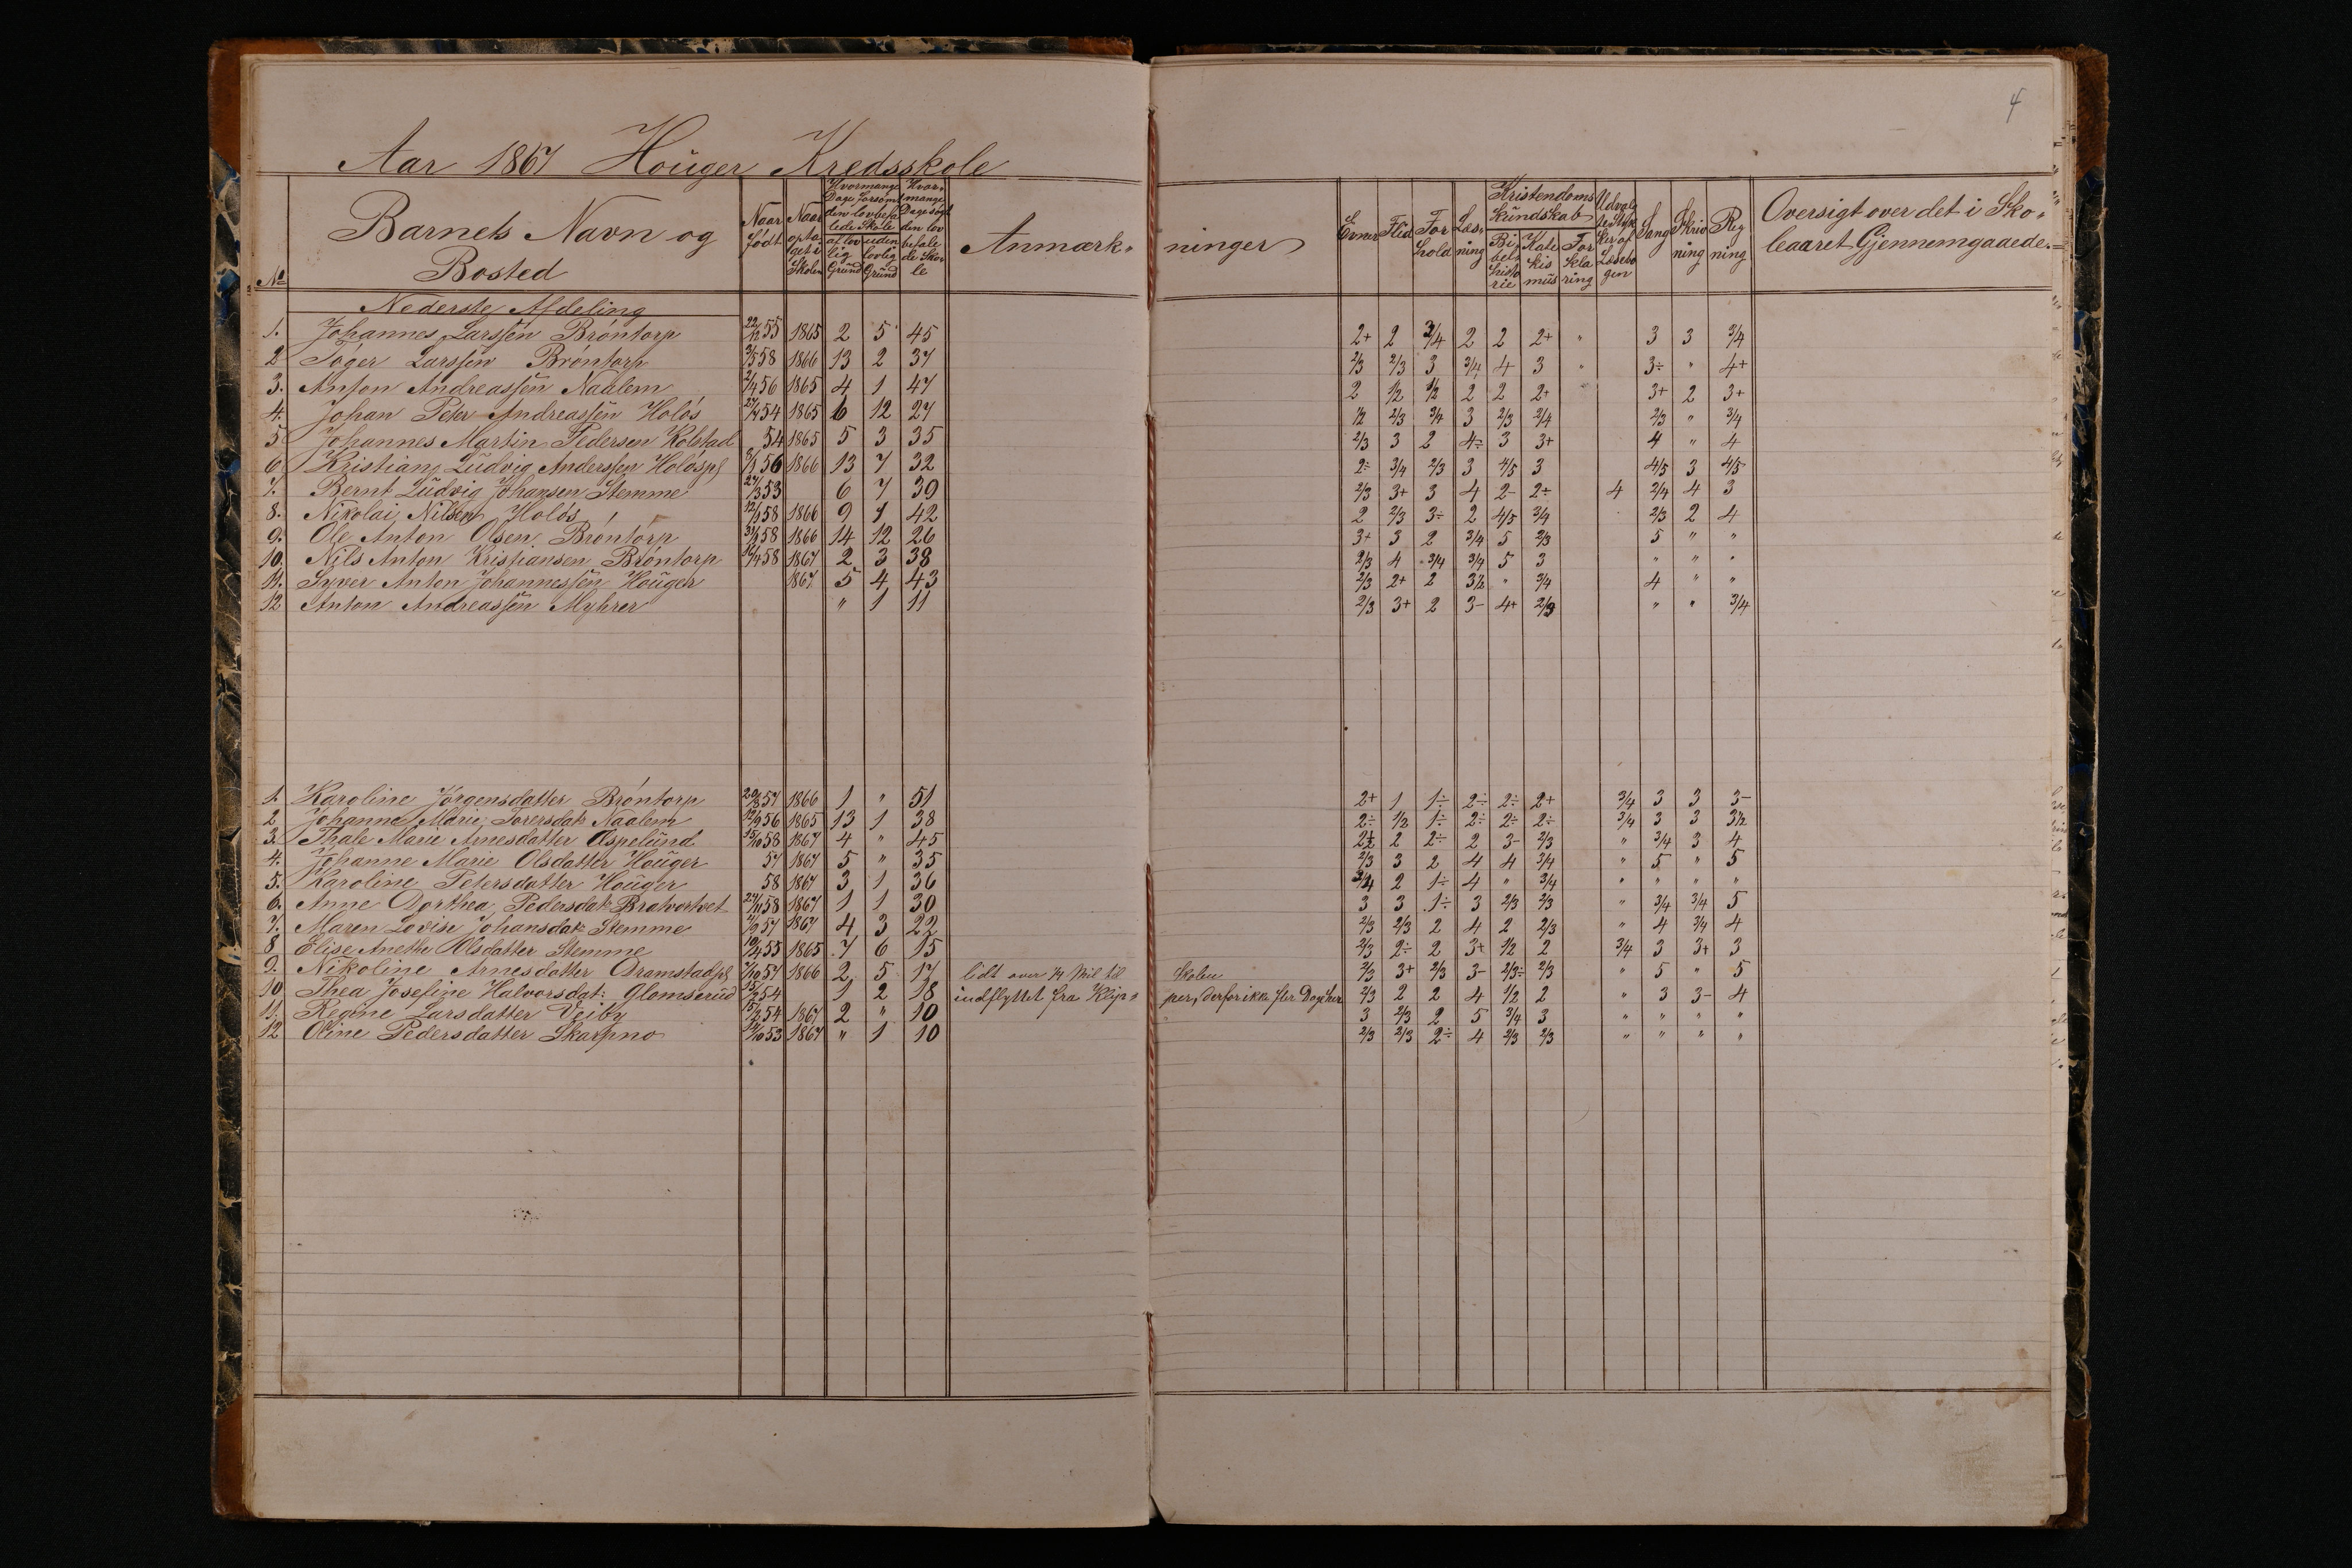 4
Aar 1867 Houger Kredsskole
No
Barnets Navn og Bosted
Naar født
Naar optaget i Skolen
Hvormange Dage forsømt den lovbefalede Skole
af lovlig Grund
uden lovlig Grund
Hvormange Dage søgt den lovbefalede Skole
Anmærkninger
Evner
Flid
Forhold
Læsning
Kristendomskundskab
Bibelhistorie
Katekismus
Forklaring
Udvalgte Stykker af Læsebogen
Sang
Skrivning
Regning
Oversigt over det i Skoleaaret Gjennemgaaede
Nederste Afdeling
1. Johannes Larssen Brøntorp 22/12 55 1865 2 5 45 2+ 2 3/4 2 2 2+ " 3 3 3/4
2 Tøger Larssen Brøntorp 3/5 58 1866 13 2 37 2/3 2/3 3 3/4 4 3 " 3÷ " 4+
3. Anton Andreassen Naalem 2/4 56 1865 4 1 47 2 1/2 1/2 2 2 2+ " 3+ 2 3+
4. Johan Peter Andreassen Holøs 54 1865 6 12 27 1/2 2/3 3/4 3 2/3 2/4 2/3 " 3/4
5 Johannes Martin Pedersen Kolstad 54 1865 5 3 35 2/3 3 2 4÷ 3 3+ 4 " 4
6 Kristian Ludvig Anderssen Holøspl 8/1 56 1866 13 7 32 2÷ 3/4 2/3 3 4/5 3 4/5 3 4/5
7. Bernt Ludvig Johansen Stemme 27/3 53 6 7 39 2/3 3+ 3 4 2- 2÷ 4 2/4 4 3
8. Nikolai Nilsen Holøs 12/1 58 1866 9 7 42 2 2/3 3÷ 2 4/5 3/4 2/3 2 4
9. Ole Anton Olsen Brøntorp 31/3 58 1866 14 12 26 3+ 3 2 3/4 5 2/3 5 " "
10. Nils Anton Kristiansen Brøntorp 58 1867 2 3 38 2/3 4 3/4 3/4 5 3 " " "
11. Syver Anton Johannessen Houger 1867 5 4 43 2/3 2+ 2 3½ " 3/4 4 " "
12 Anton Andreassen Myhrer " 1 11 2/3 3+ 2 3- 4+ 2/3 " " 3/4
1. Karoline Jørgensdatter Brøntorp 57 1866 1 " 51 2+ 1 1÷ 2÷ 2÷ 2+ 3/4 3 3 3-
2 Johanne Marie Torersdatr Naalem 12/9 56 1865 13 1 38 2÷ 1/2 1÷ 2÷ 2÷ 2÷ 3/4 3 3 3½
3. Thale Marie Arnesdatter Aspelund 15/10 58 1867 4 " 45 2½ 2 2÷ 2 3- 2/3 " 3/4 3 4
4. Johanne Marie Olsdatter Houger 57 1867 5 " 35 2/3 3 2 4 4 3/4 " 5 " 5
5. Karoline Petersdatter Houger 58 1867 3 1 36 3/4 2 1÷ 4 " 3/4 " " " "
6. Anne Dorthea Pedersdatr Bratvortvet 24/11 58 1867 1 1 30 3 3 1÷ 3 2/3 2/3 " 3/4 3/4 5
7. Maren Lovise Johansdatr Stemme 2/9 57 1867 4 3 22 2/3 2/3 2 4 2 2/3 " 4 3/4 4
8 Elise Anethe Olsdatter Stemme 10/4 55 1865 7 6 15 2/3 2÷ 2 3+ 1/2 2 3/4 3 3+ 3
9. Nikoline Arnesdatter Dramstadpl 7/10 57 1866 2 5 17 lidt over ¼ Mil til Skolen 2/3 3+ 2/3 3- 2/3÷ 2/3 " 5 " 5
10 Thea Josefine Halvorsdatr. Glomserud 15/2 54 1 2 18 indflyttet fra Klyp=per, derfor ikke fler Dage her 2/3 2 2 4 1/2 2 " 3 3- 4
11. Regine Larsdatter Veiby 15/2 54 1867 2 " 10 3 2/3 2 5 3/4 3 " " " "
12 Oline Pedersdatter Skarpno 14/10 53 1867 " 1 10 2/3 2/3 2÷ 4 2/3 2/3 " " " "